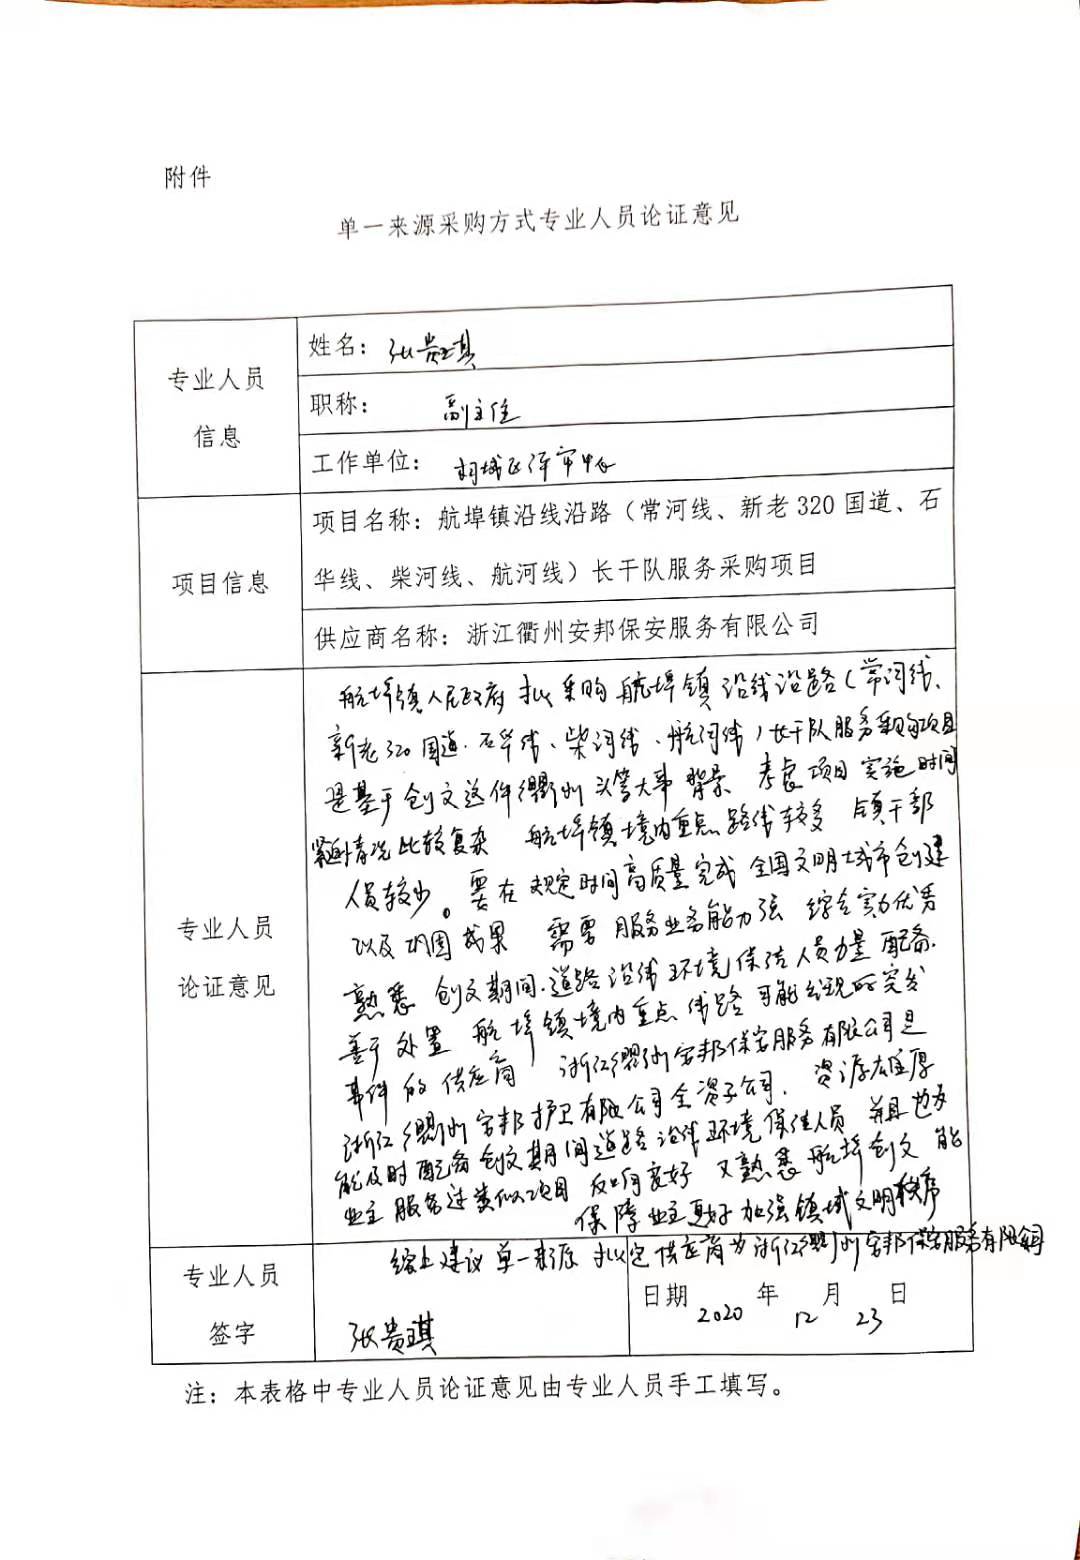 附件
单一来源采购方式专业人员论证意见
专业人员
信息
姓名：张贵琪
职称：副主任
工作单位：柯城区评审中心
项目信息
项目名称：航埠镇沿线沿路（常河线、新老320国道、石
华线、柴河线、航河线）长干队服务采购项目
供应商名称：浙江衢州安邦保安服务有限公司
专业人员
论证意见
航埠镇人民政府拟采购航埠镇沿线沿路（常河线、
新老320国道、石华线、柴河线、航河线）长干队服务采购项目
是基于创文这件衢州头等大事背景 考虑项目实施时间
紧迫情况比较复杂 航埠镇境内重点路线较多 镇干部
人员较少。要在规定时间高质量完成全国文明城市创建
以及巩固成果 需要服务业务能力强 综合实力优秀
熟悉创文期间.道路沿线环境保洁人员力量配备.
善于处置航埠镇境内重点线路可能出现的突发
事件的供应商 浙江衢州安邦保安服务有限公司是
浙江衢州安邦护卫有限公司全资子公司. 资源雄厚
能及时配备创文期间道路沿线环境保洁人员 并且也为
业主服务过类似项目 反响良好 又熟悉航埠创文 能
保障业主更好加强镇域文明秩序
综上建议单一来源 拟定供应商为浙江衢州安邦保安服务有限公司
专业人员
签字
张贵琪
日期 2020 年 12 月 23 日
注：本表格中专业人员论证意见由专业人员手工填写。